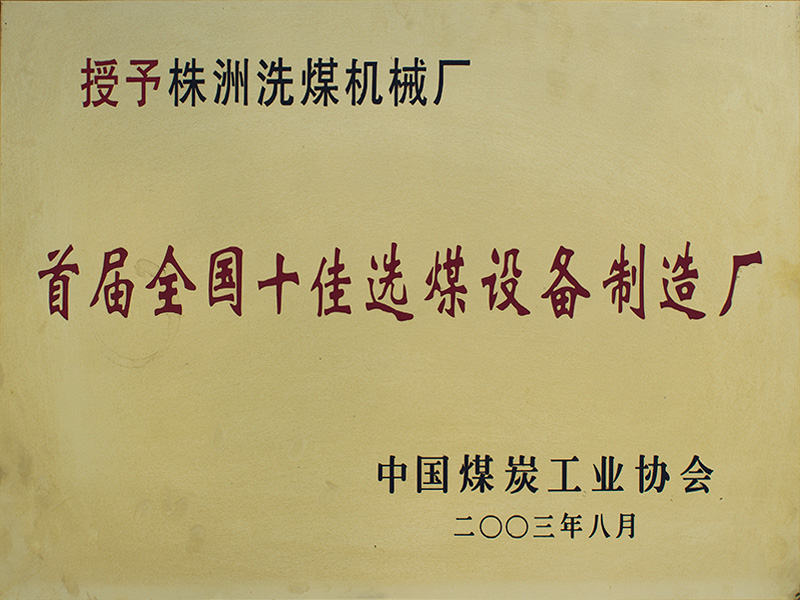 授予株洲洗煤机械厂
首届全国十佳选煤设备制造厂
中国煤炭工业协会
二〇〇三年八月